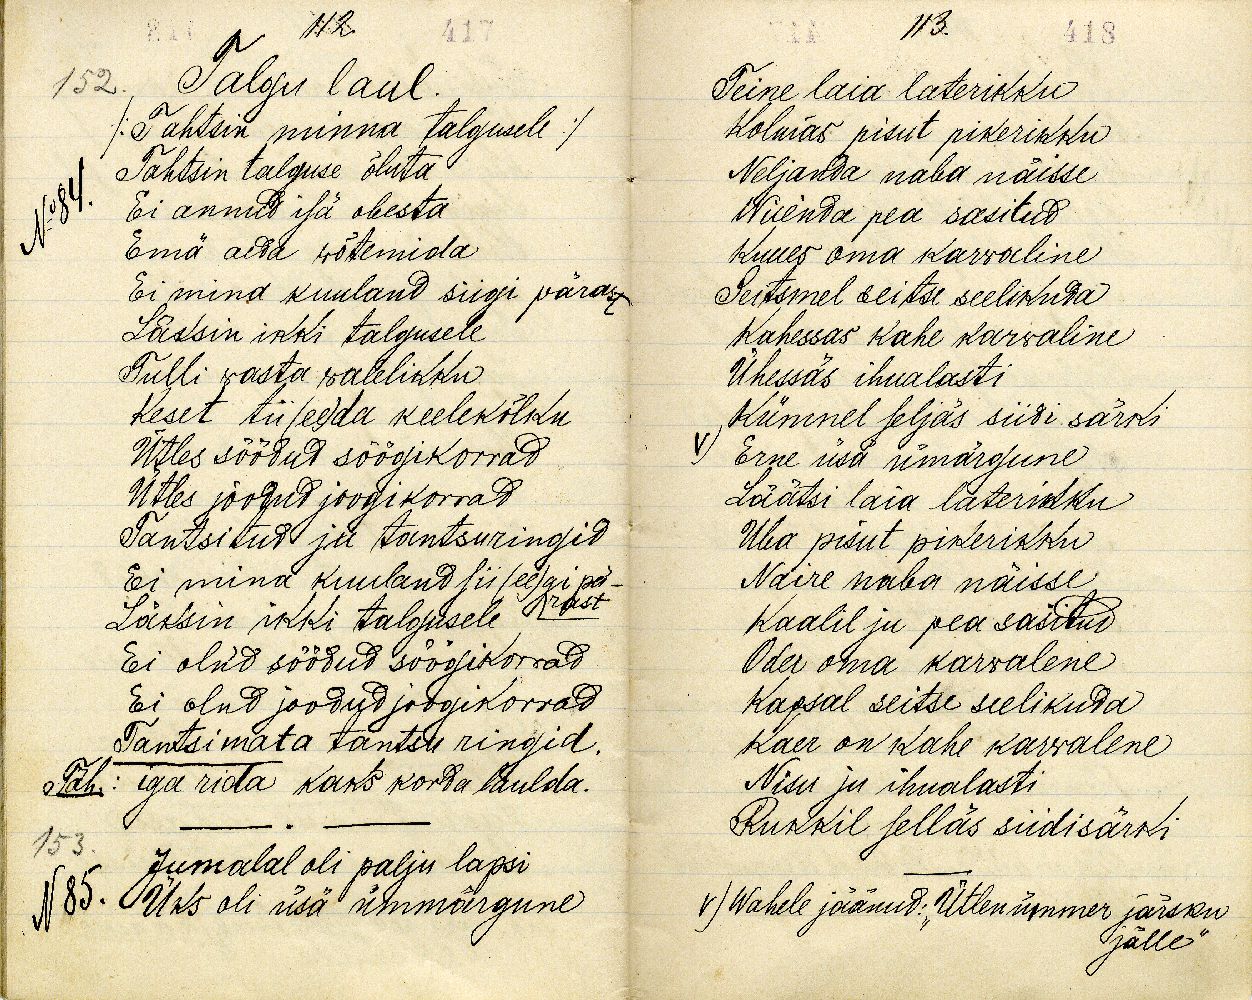 112.
417
152.
Talgu laul.
/: Tahtsin minna talgusele :/
No 84.
Tahtsin talguse õluta
Ei annud isä obesta
Emä aeda wõtemida
Ei mina kuuland siigi pärast
Läksin ikki talgusele
Tulli wasta walelikku
Keset tii(ee)da keelekõlku
Ütles söödud söögikorrad
Ütles joodud joogikorrad
Tantsitud ju tantsuringid
Ei mina kuuland sii(ee)gi pä-
rast
Läksin ikki talgusele
Ei olnd söödud söögikorrad
Ei olnd joodud joogikorrad
Tantsimata tantsu ringid.
Täh.: iga rida kaks korda laulda.
153.
N 85.
Jumalal oli palju lapsi
Üks oli üsä ümmärgune
113.
418
Teine laia laterikku
Kolmas pisut pikerikku
Neljanda naba näisse
Wiienda pea sasitud
Kuues oma karwaline
Seitsmel seitse seelikuda
Kahessas kahe karwaline
Ühessäs ihualasti
Kümnel seljäs siidi särki
v) Erne üsä ümärgune
Läätsi laia laterikku
Uba pisut pikerikku
Naire naba näisse
Kaalil ju pea sasitud
Oder oma karwalene
Kapsal seitse seelikuda
Kaer on kahe karwalene
Nisu ju ihualasti
Rukkil selläs siidisärki
v) Wahele jäänud: „Ütlen ümmer järsku
jälle"